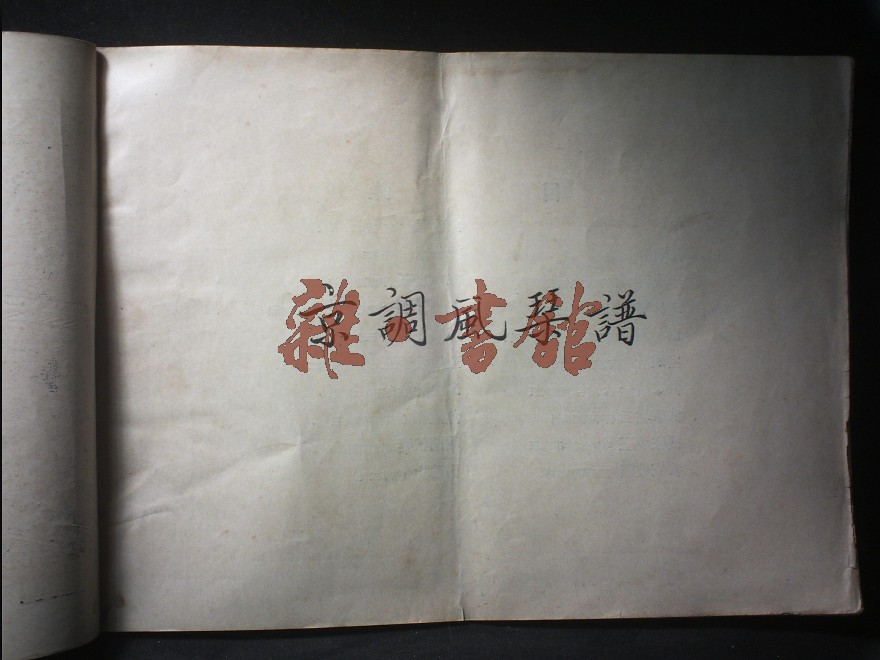 京調風琴譜
雜·書館